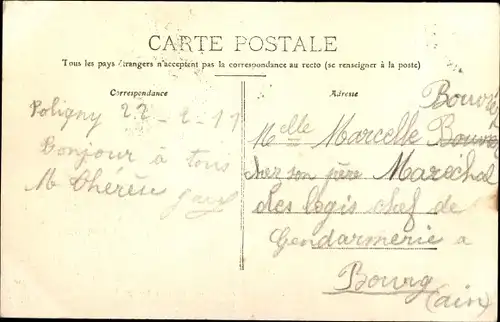 CARTE POSTALE
Tous les pays étrangers n'acceptent pas la correspondance au recto (se renseigner à la poste)
Correspondance
Poligny 22 - 2 - 11
Bonjour à tous
M Thérèse
Adresse
Melle Marcelle
cher son père Maréchal
des logis chef de
Gendarmerie a
Bourg
(ain)